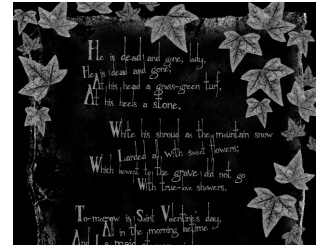 He is dead and gone, lady,
He is dead and gone;
At his head a grass-green turf,
At his heels a stone.
White his shroud as the mountain snow
Larded all with sweet flowers;
Which bewept to the grave did not go
With true-love showers.
To-morrow is Saint Valentine's day,
All in the morning betime
And I a maid at